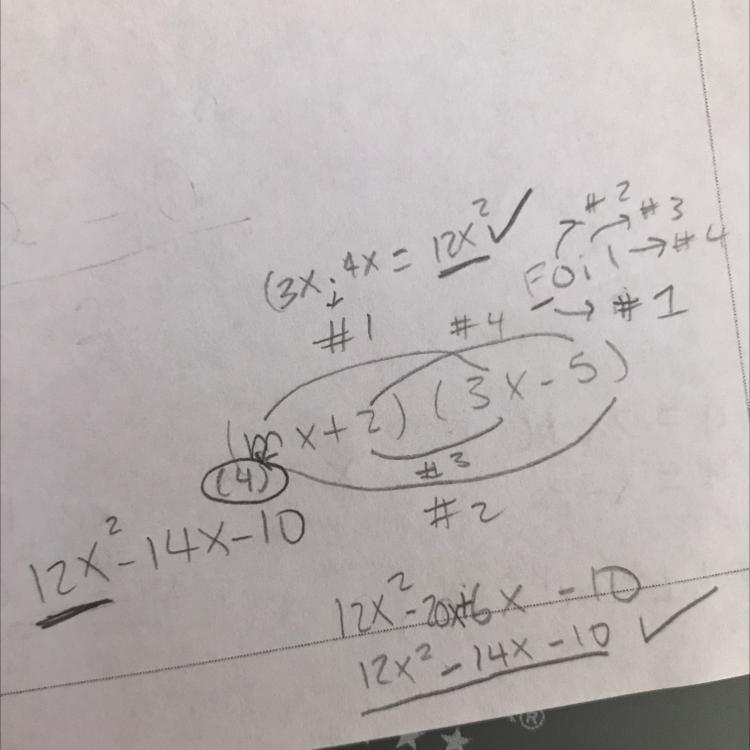 #2
#3
(3x · 4x = 12x² ✓
Foil → #4
#1
→ #1
#4
(mx+2) (3x-5)
(4)
#3
#2
12x²-14x-10
12x²-20x+6x -10
12x²-14x-10 ✓
®